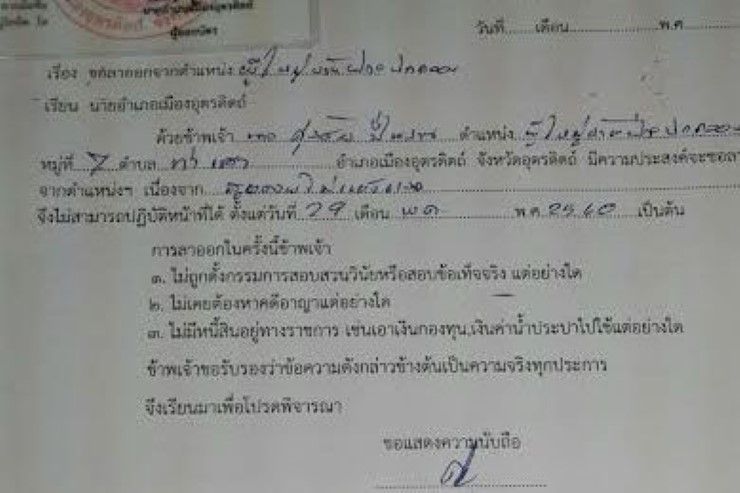 วันที่ เดือน พ.ศ
เรื่อง ขอลาออกจากตำแหน่ง
เรียน นายอำเภอเมืองอุตรดิตถ์
ด้วยข้าพเจ้า ตำแหน่ง
หมู่ที่ 7 ตำบล ท่าเสา อำเภอเมืองอุตรดิตถ์ จังหวัดอุตรดิตถ์ มีความประสงค์จะขอลา
จากตำแหน่งฯ เนื่องจาก
จึงไม่สามารถปฏิบัติหน้าที่ได้ ตั้งแต่วันที่ 29 เดือน พ.ค. พ.ศ 2560 เป็นต้น
การลาออกในครั้งนี้ข้าพเจ้า
๑. ไม่ถูกตั้งกรรมการสอบสวนวินัยหรือสอบข้อเท็จจริง แต่อย่างใด
๒. ไม่เคยต้องหาคดีอาญาแต่อย่างใด
๓. ไม่มีหนี้สินอยู่ทางราชการ เช่นเอาเงินกองทุน,เงินค่าน้ำประปาไปใช้แต่อย่างใด
ข้าพเจ้าขอรับรองว่าข้อความดังกล่าวข้างต้นเป็นความจริงทุกประการ
จึงเรียนมาเพื่อโปรดพิจารณา
ขอแสดงความนับถือ